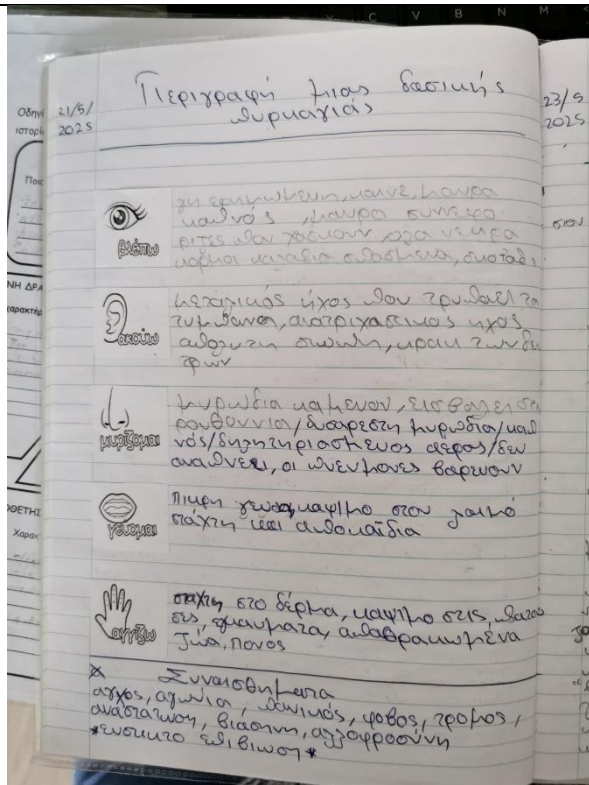 C V B N M
Οδηγ
ιστορί
21/5/
2025
Περιγραφή μιας δασικής
πυρκαγιάς
23/5
2025
βλέπω
γη ερημωμενη, καινε, μαυρα
καπνός, μαυρο συννεφο
ριζες που χασκουν, ολα νεκρα
κορμοι κλαδια σπασμενα, σκοταδι
στον
ακούω
μεταλικος ήχος που τρυπαει τα
τυμπανα, ανατριχαστικος ηχος
απολυτη σιωπη, κρακ των δε
τρων
μυρίζομαι
μυρωδια καμενου, εισβαλει στα
ρουθουνια/δυσαρεστη μυρωδια/καπ
νός/δηλητηριασμενος αερας/δεν
αναπνεει, οι πνευμονες βαρεινουν
γεύομαι
πικρη γευση, καψιμο στον λαιμό
στάχτη και αποκαΐδια
αγγίζω
σταχτη στο δέρμα, καψιμο στις πατου
σες, εγκαυματα, απαθρακωμένα
ζωα, πονος
Συναισθηματα
αγχος, αγωνια, πανικός, φοβος, τρομος,
αναστατωση, βιασηνη, αλλοφροσύνη
*ενστικτο επιβιωση*